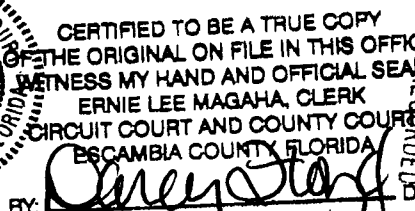 CERTIFIED TO BE A TRUE COPY
OF THE ORIGINAL ON FILE IN THIS OFFIC
WITNESS MY HAND AND OFFICIAL SEA
ERNIE LEE MAGAHA, CLERK
CIRCUIT COURT AND COUNTY COURT
ESCAMBIA COUNTY FLORIDA
BY: